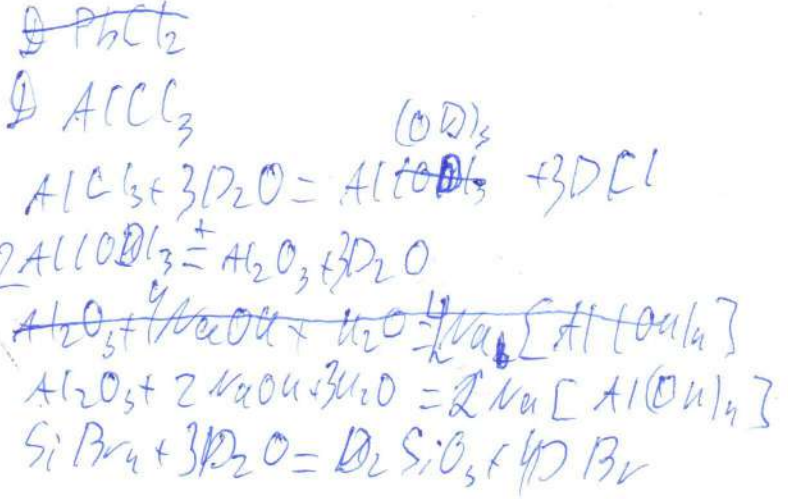 PbCl2
AlCl3
AlCl3 + 3D2O = Al(OD)3 + 3DCl
2Al(OD)3 t= Al2O3 + 3D2O
Al2O3 + 4NaOH + H2O = Na[Al(OH)4]
Al2O3 + 2NaOH + 3H2O = 2Na[Al(OH)4]
SiBr4 + 3D2O = D2SiO3 + 4DBr